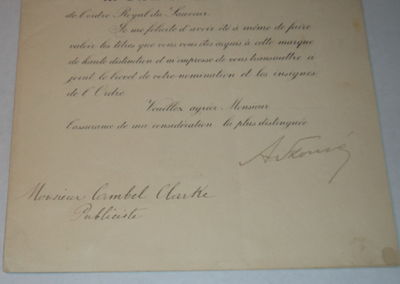 de l'ordre Royal du Sauveur.
Je me félicite d'avoir été à même de faire
valoir les titres que vous vous êtes acquis à cette marque
de haute distinction et m'empresse de vous transmettre ci
joint le brevet de votre nomination et les insignes
de l'Ordre.
Veuillez agréer Monsieur
l'assurance de ma considération la plus distinguée
Monsieur Cambel Clarke
Publiciste